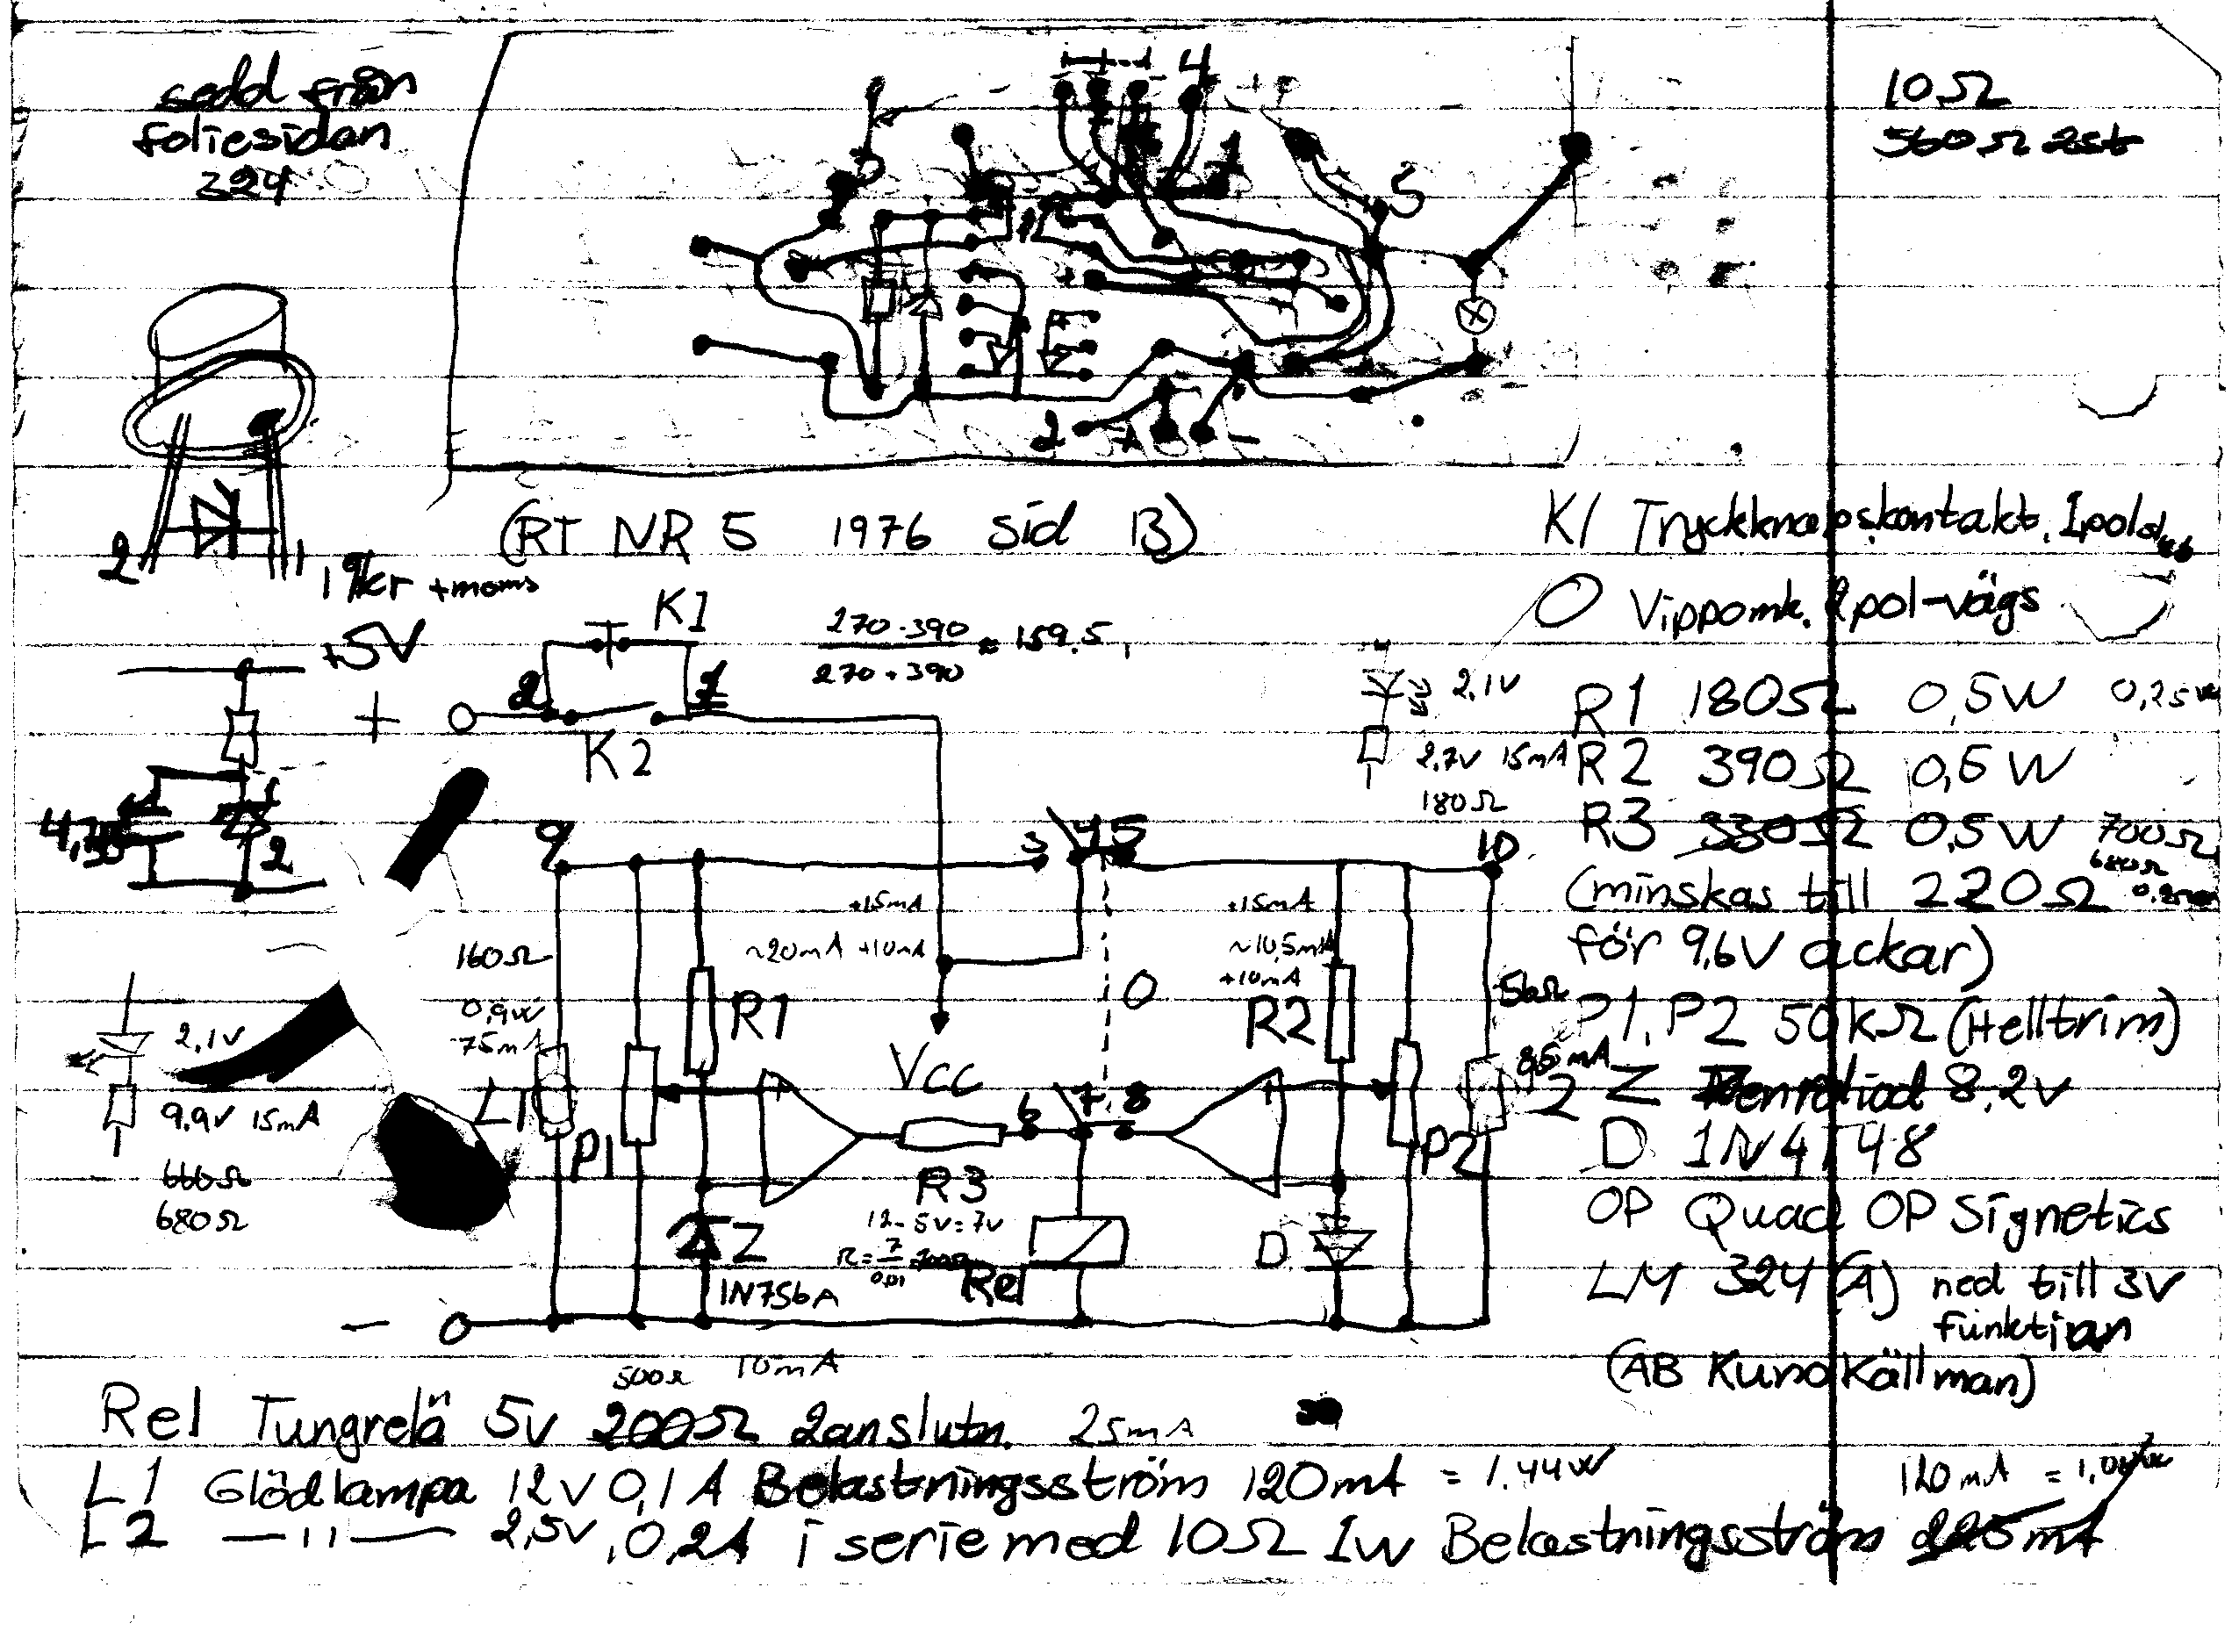 sedd från
foliesidan
324
1
4
+
3
1
5
2
-
10Ω
560Ω 2st
(RT NR 5 1976 Sid 13)
2
1
kr +moms
K1 Tryckknapskontakt. 1pol
O Vippomk. 2pol-vägs
+5V
1
2
+
2
K1
1
K2
270·390
270+390
≈ 159.5
2,1V
2,7V 15mA
180Ω
R1 180Ω 0,5W 0,25W
R2 390Ω 0,5W
R3 330Ω 0,5W 700Ω
680Ω
(minskas till 220Ω
för 9,6V ackar)
P1, P2 50kΩ (Helltrim)
Z Zenrdiod 8.2V
D 1N4148
OP Quad OP Signetics
LM 324 (A) ned till 3V
funktion
(AB Kuno Källman)
9
3
4
5
10
+15mA
~20mA +10mA
+15mA
~10,5mA
+10mA
160Ω
0,9W
75mA
56Ω
85mA
R1
R2
O
Vcc
L1
P1
P2
6
7
8
R3
12-5V=7V
R=7/0,01
Z
1N756A
Rel
D
-
2,1V
9,9V 15mA
660Ω
680Ω
500Ω 10mA
Rel Tungrelä 5V 200Ω 2anslutn. 25mA
L1 Glödlampa 12V 0,1A Belastningsström 120mA = 1.44W
120mA
L2 —"— 2,5V, 0,2A i serie med 10Ω 1W Belastningsström 225mA